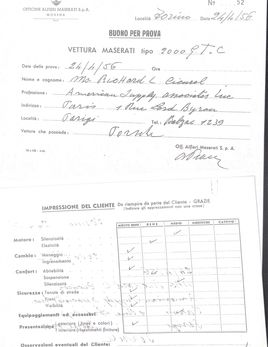 OFFICINE ALFIERI MASERATI S.p.A.
MODENA
N° 52
Località Torino Data 24/4/56
BUONO PER PROVA
VETTURA MASERATI tipo 2000 GT.C
Data della prova: 24/4/56 Ore
Nome e cognome: Mr. Richard L.
Professione: American Supply
Indirizzo: Paris 1 Rue Lord Byron
Località: Parigi Tel. Balzac 1239
Vettura che possiede:
Off. Alfieri Maserati S. p. A.
IMPRESSIONE DEL CLIENTE - Da riempire da parte del Cliente - GRAZIE
(Indicare gli apprezzamenti con una croce)
MOLTO BENE BENE MEDIO MEDIOCRE CATTIVO
Motore: Silenziosità
Elasticità
Cambio: Maneggio
Ingranamento
Confort: Abitabilità
Sospensione
Silenziosità
Sicurezza: Tenuta di strada
Freni
Visibilità
Equipaggiamento ed accessori
Presentazione: esteriore (linea e colori)
interiore (tappezzeria finiture)
Osservazioni eventuali del Cliente: